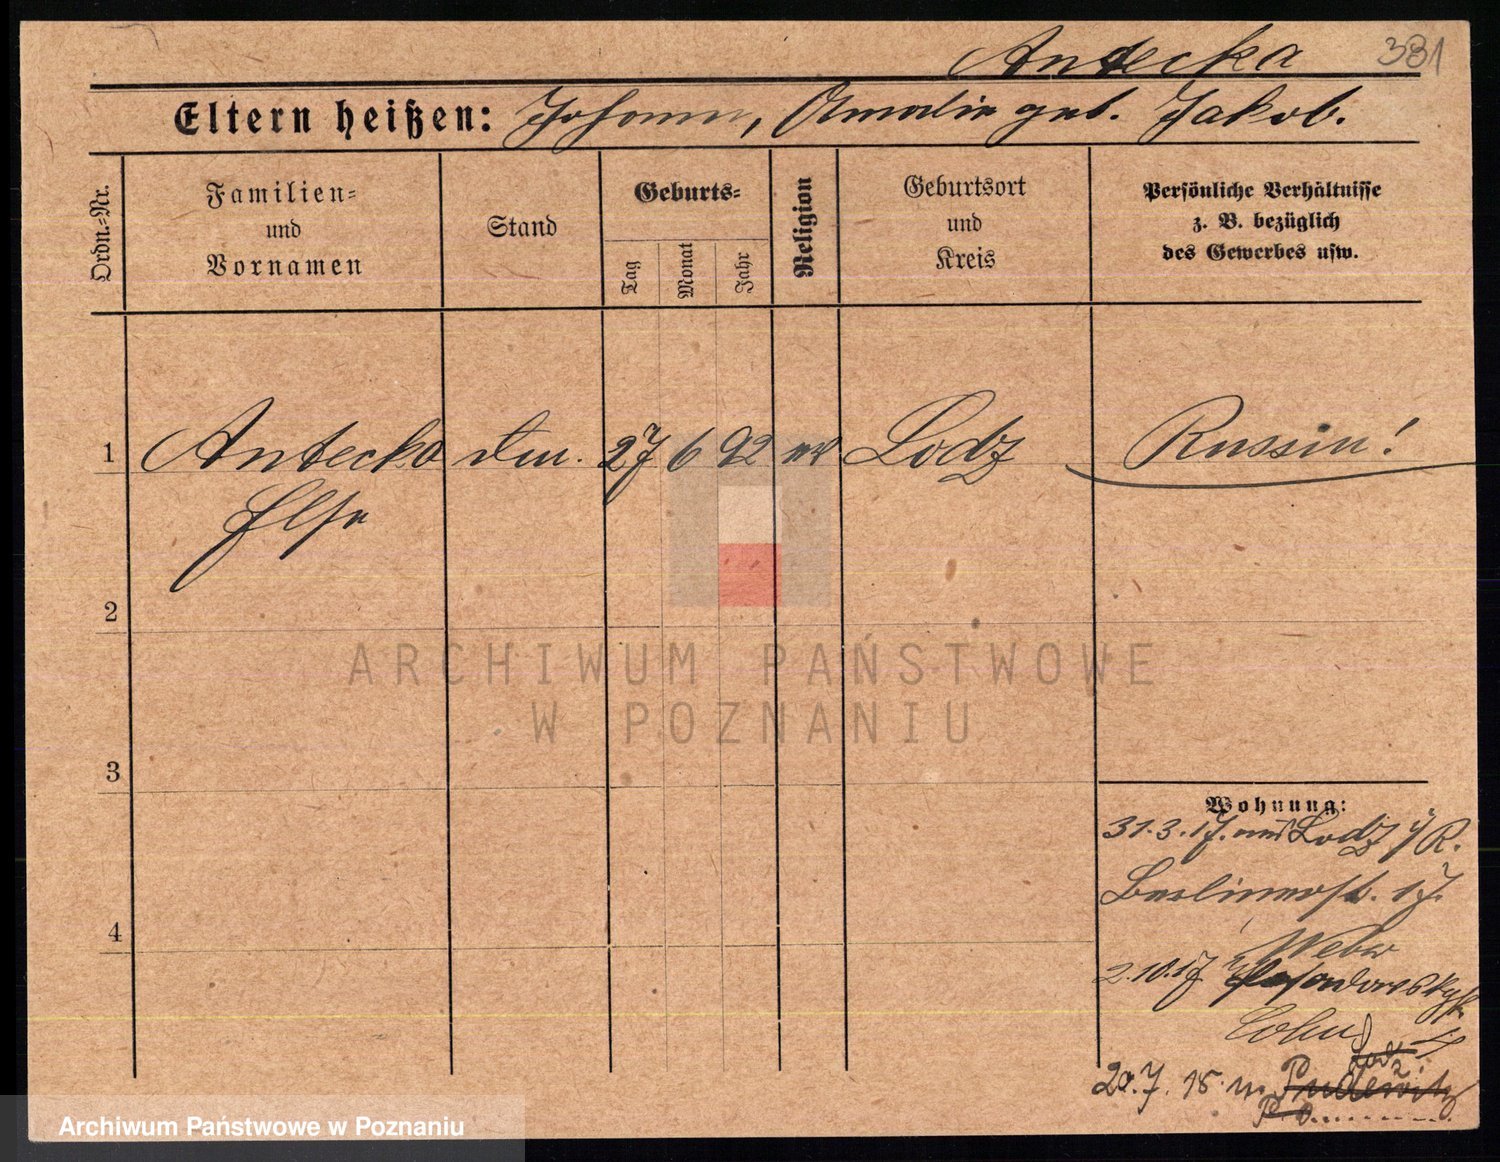 Antecka 381
Eltern heißen: Johann, Amalie geb. Jakob.
Ordn.-Nr.
Familien-
und
Vornamen
Stand
Geburts-
Tag
Monat
Jahr
Religion
Geburtsort
und
Kreis
Persönliche Verhältnisse
z. B. bezüglich
des Gewerbes usw.
1 Antecka 27 6 92 Lodz Russin!
Else
2
ARCHIWUM PAŃSTWOWE
W POZNANIU
3
Wohnung:
31.3.17. aus Lodz i/R.
Berlinerstr. 17.
4
Weber
2.10.17
Cohn
Lodz
20.7.18. n. Pudewitz
P
Archiwum Państwowe w Poznaniu